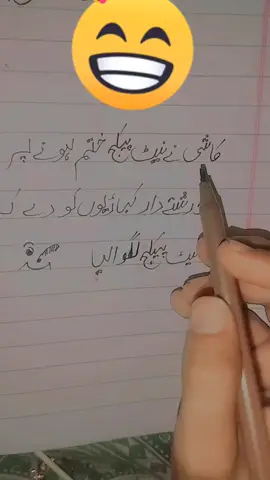 کاشی نے نیٹ پیکج ختم ہونے پر
رشتے دار کباڑیوں کو دے ک
نیٹ پیکج لگوا لیا